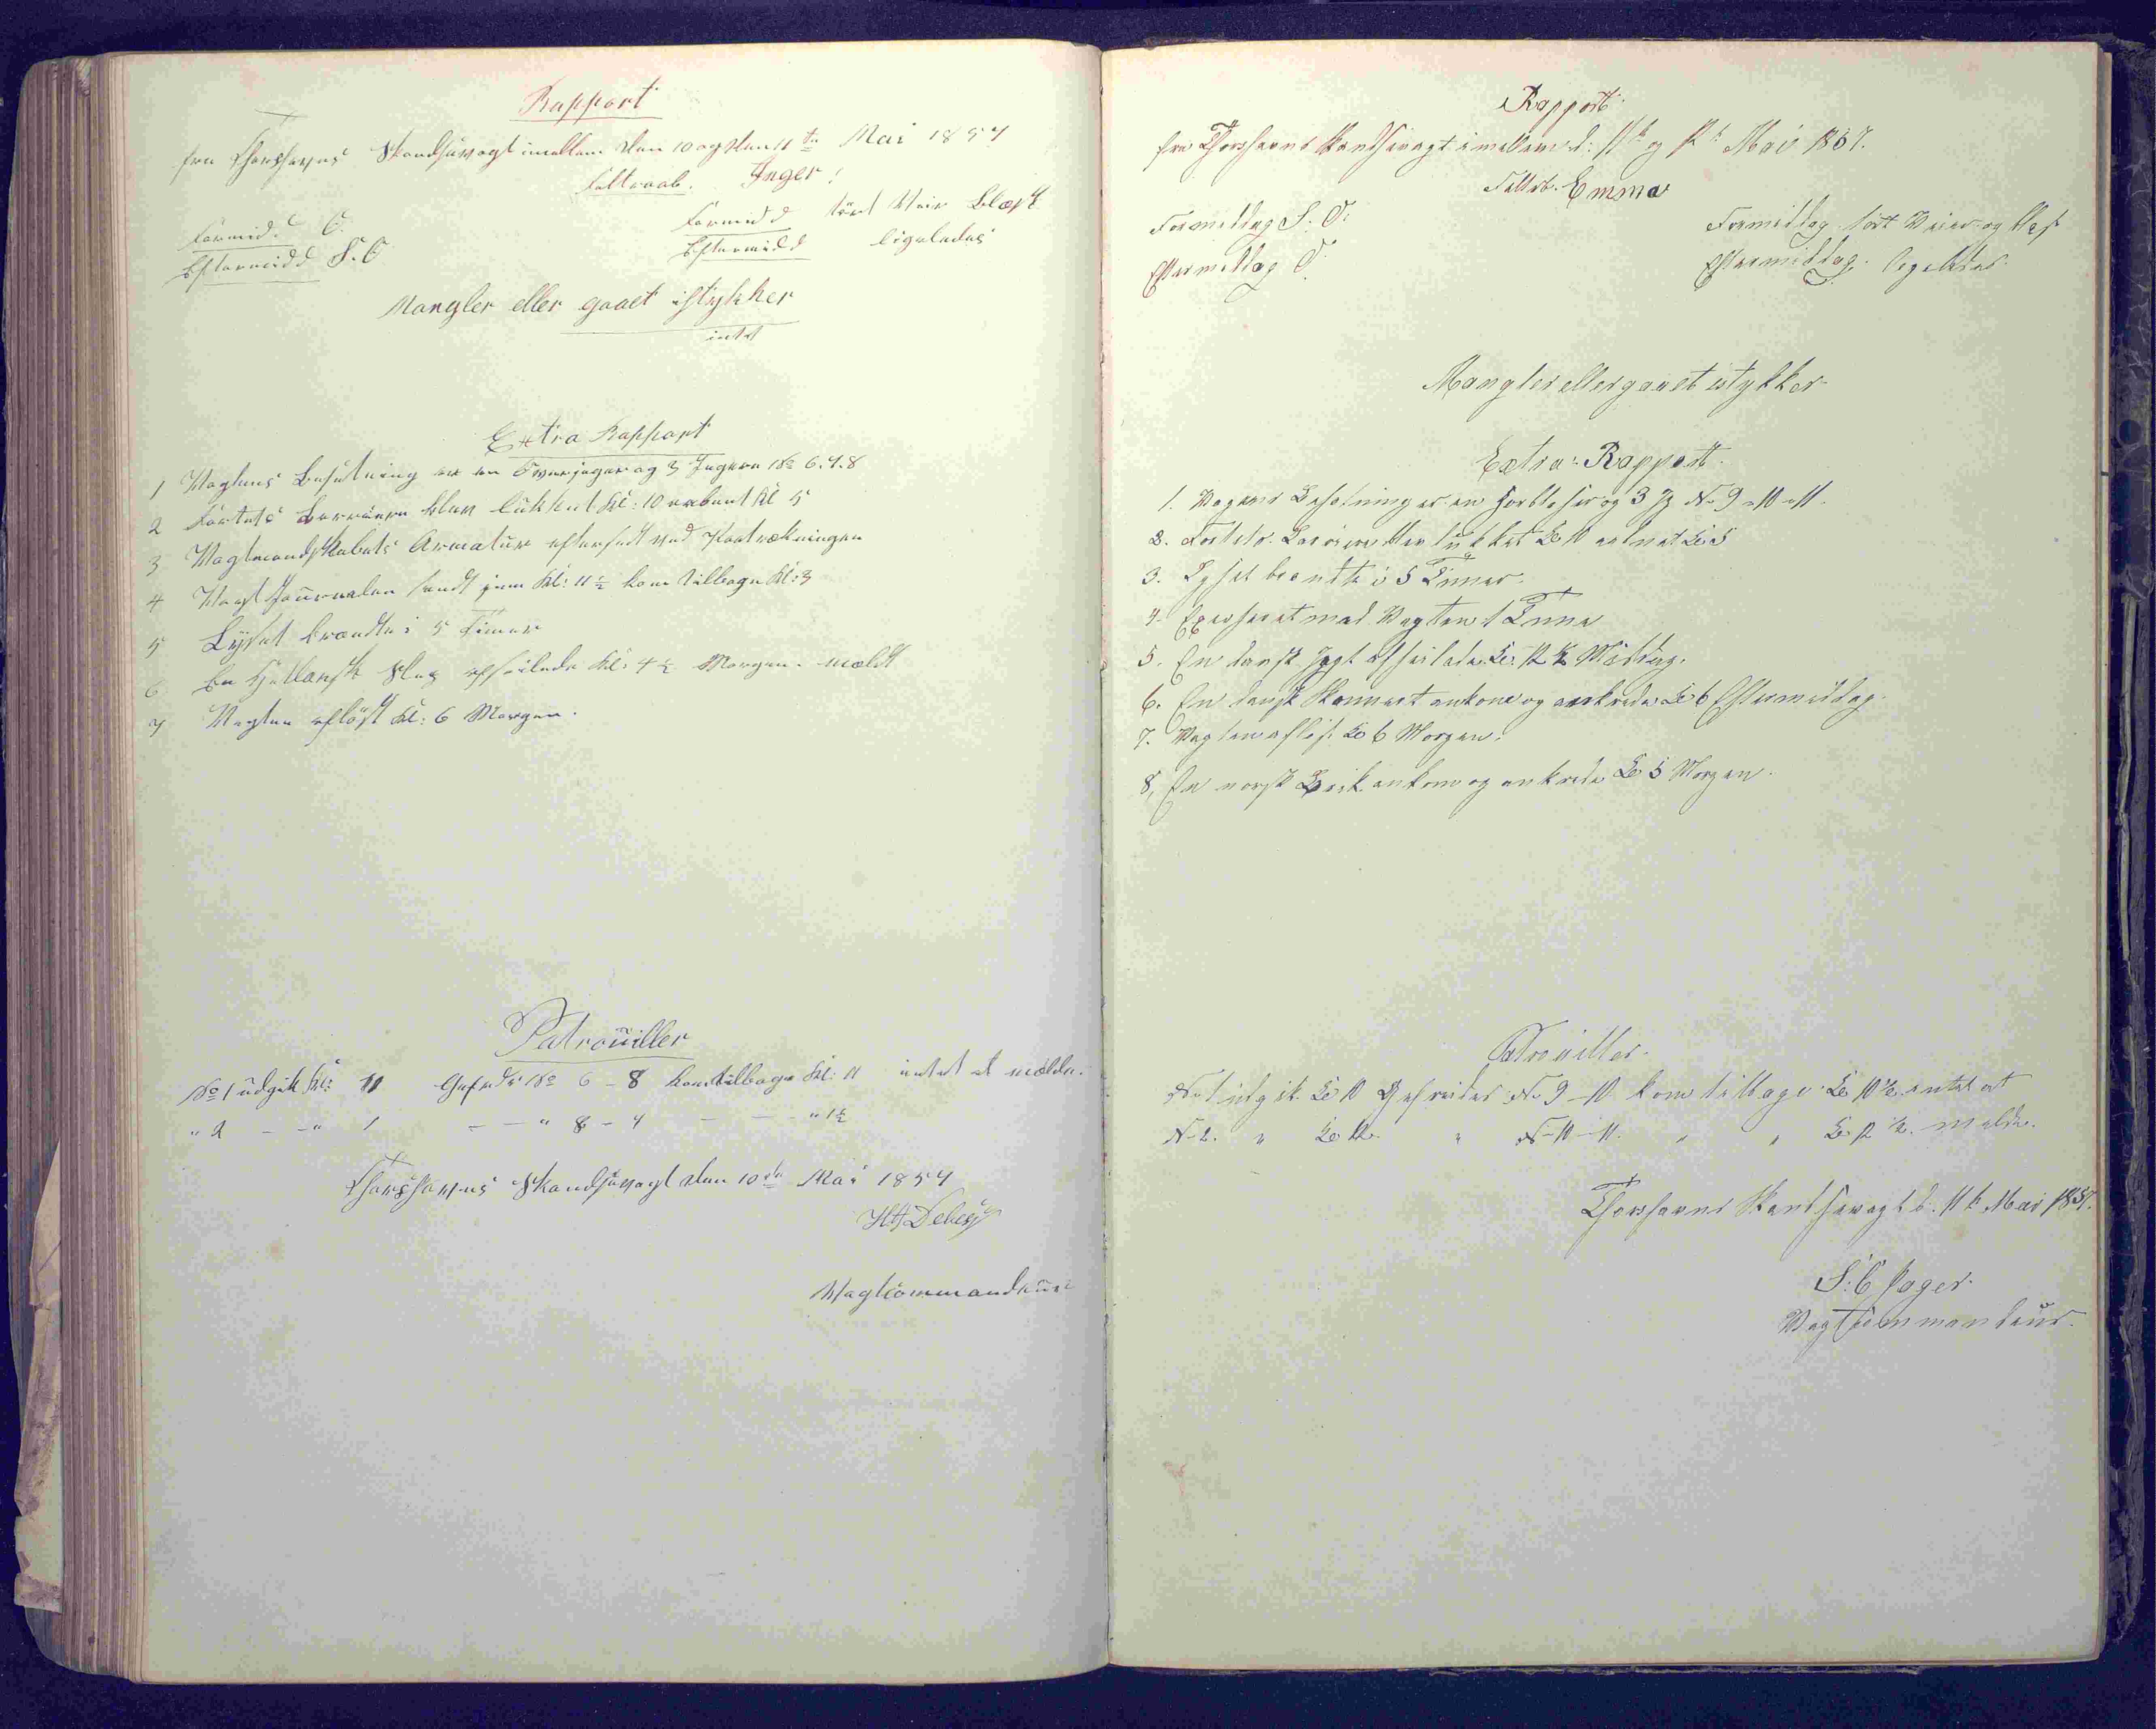 Rapport
fra Thorshavns Skandsevagt imellem den 10 og den 11te Mai 1857
Feltraab. Inger!
Formidd O. Formidd tört Veir Blæst
Eftermidd S.O Eftermidd ligeledes
Mangler eller gaaet istykker
intet
Extra Rapport
1 Vagtens Besætning er en Overjæger og 3 Jægere No 6.7.8
2 Fortets Barriere blev lükket Kl: 10 aabent Kl 5
3 Vagtmandskabets Armatur efterseet ved
4 Vagt Jöurnalen sendt Kl: 11½ kom tilbage Kl: 3
5 Lyset brændte i 5 Timer
6 En Hollansk Slup afseilede Kl: 4½ Morgen. mældt
7 Vagten aflöst Kl: 6 Morgen.
Patroüiller
No 1 üdgik Kl: 11 Gefreder No 6 - 8 kom tilbage Kl: 11 intet at mælde.
" 2 - - " 1 - - " 8 - 7 - - - " 1½
Thorshavns Skandsevagt den 10de Mai 1857
HH Debes
Vagtcommandeür
Rapport
fra Thorshavns Skandsevagt imellem d: 11te og 12te Mai 1857.
Feltrb. Emma
Formiddag S.O. Formiddag tört Veier og Blæst
Eftermiddag O. Eftermiddag. ligeledes.
Mangler eller gaaet istykker
Extra: Rapport.
1. Vagtens Besætning er en og 3 Jg No 9 - 10 - 11.
2. Fortets Bariere blev lükket Kl 10 aabnet Kl 5
3. Lyset brendte i 5 Timer.
4. Exerseret med Vagten 1 Time
5. En dansk Jagt afseilede Kl. 12½ Middag.
6. En dansk Skonnert ankom og ankrede Kl 6 Eftermiddag.
7. Vagten aflöst Kl 6 Morgen.
8. En norsk ankom og ankrede Kl 5 Morgen.
Patroüiller.
No 1 üdgik Kl 10 Gefreider No 9 - 10 kom tilbage Kl 10½ intet at
N-2. " Kl 12. " N-10-11. " " Kl. 12½. melde.
Thorshavns Skandsevagt d. 11te Mai 1857.
S. C Jager.
Vagtcommandeür.